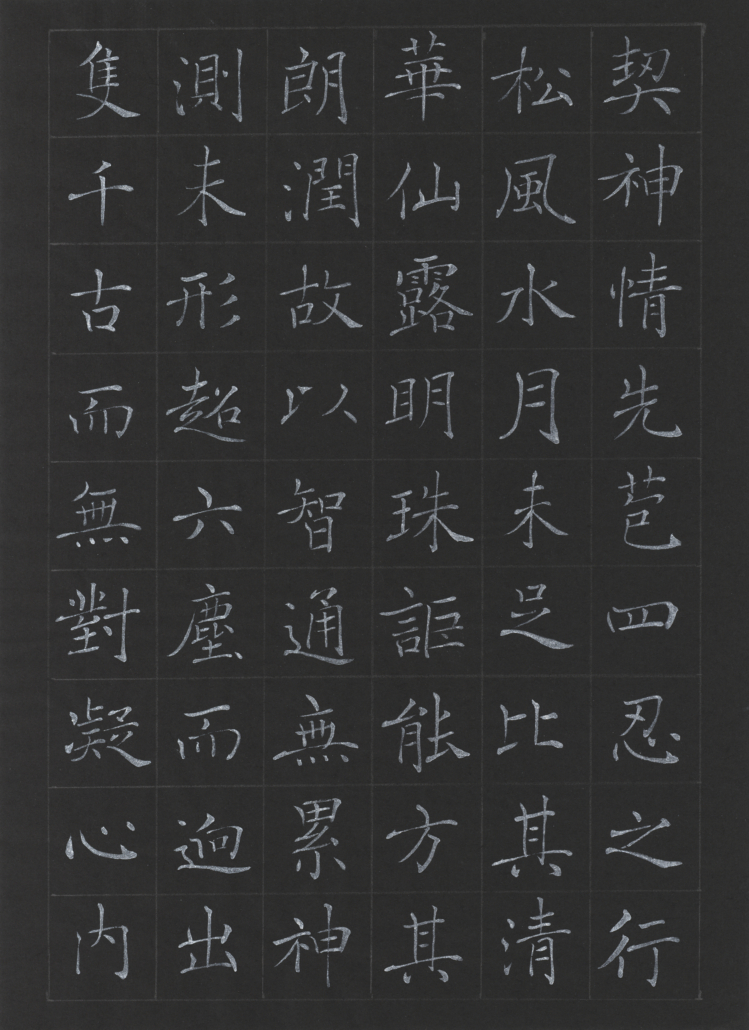 契神情先苞四忍之行
松風水月未足比其清
華仙露明珠詎能方其
朗潤故以智通無累神
測未形超六塵而迥出
隻千古而無對凝心内